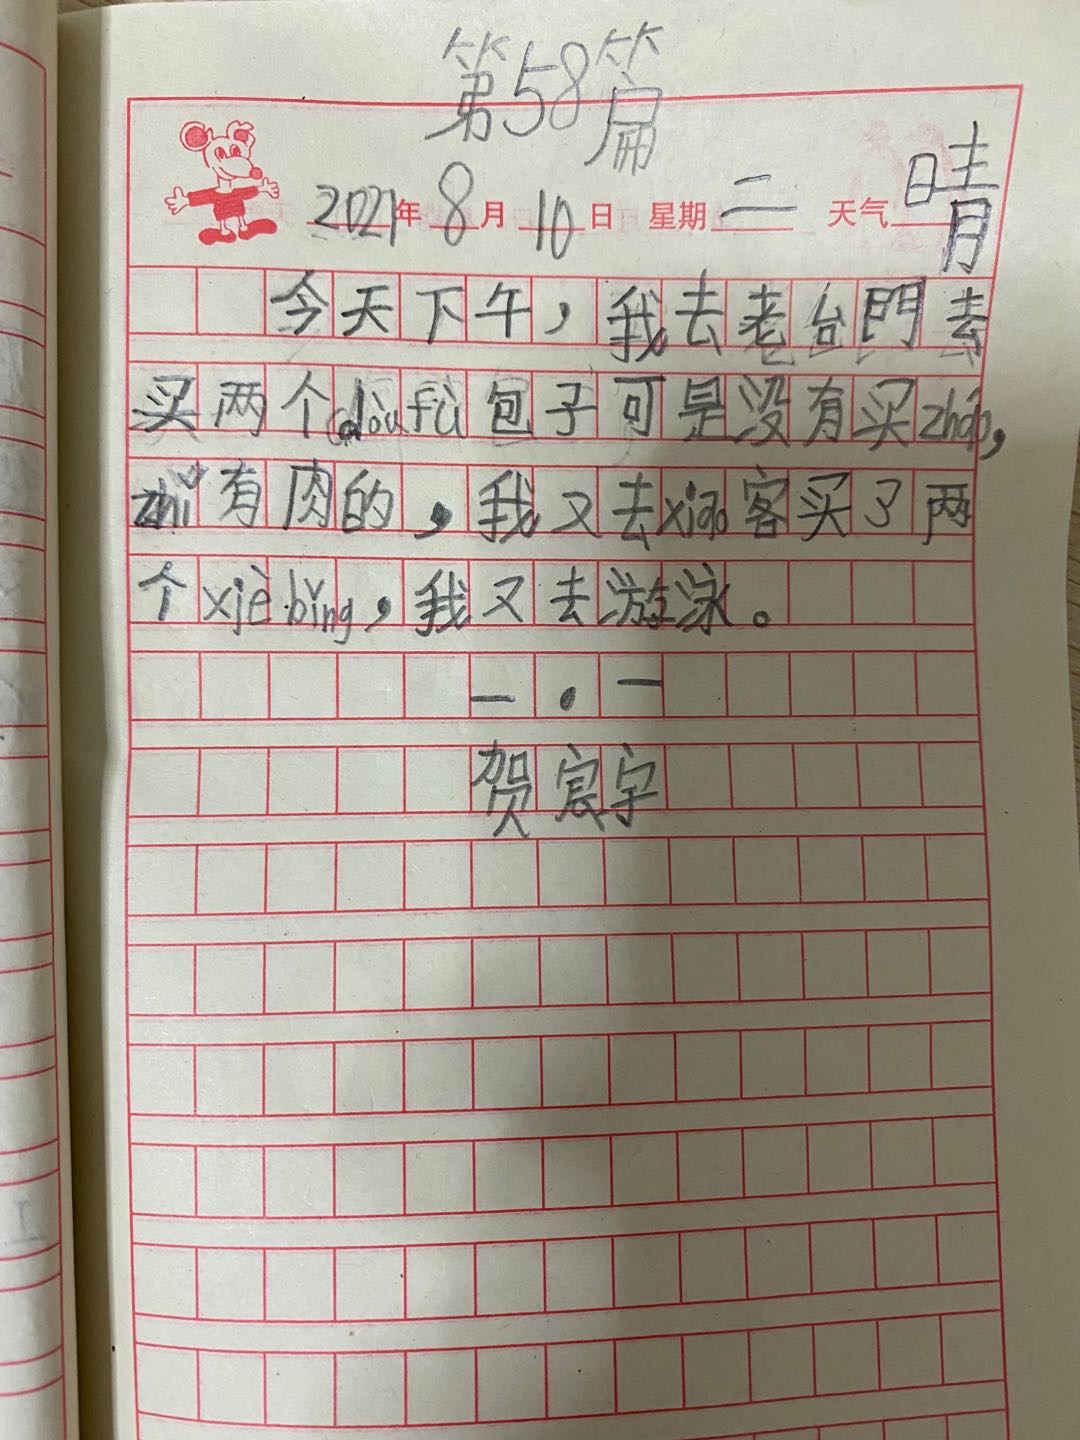 第58篇
2021年8月10日 星期二 天气晴
今天下午，我去老台門去
买两个dòu fu包子可是没有买zháo，
zhǐ有肉的，我又去xiǎo客买了两
个xiè bǐng，我又去游泳。
— . —
贺宸宇